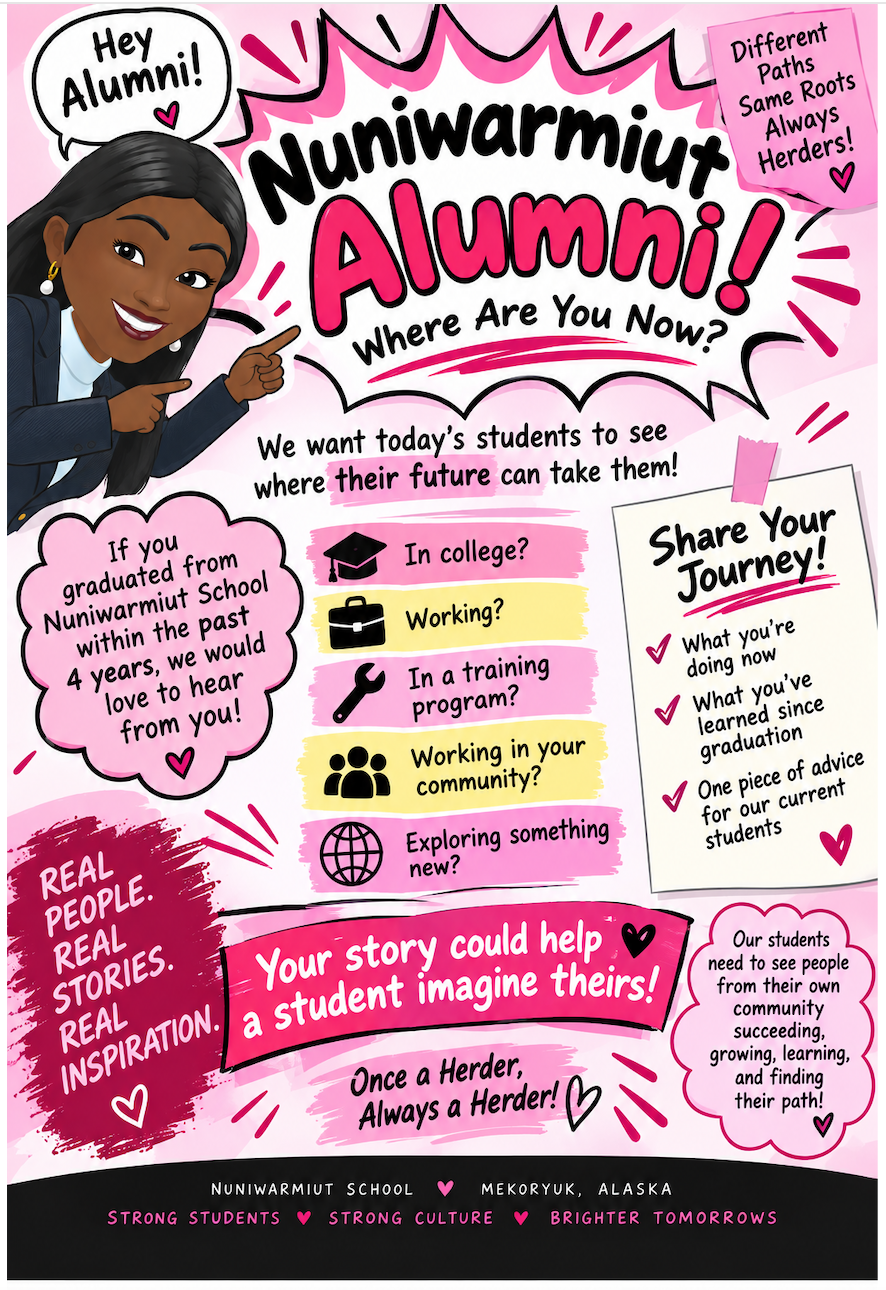 Hey
Alumni!
Different
Paths
Same Roots
Always
Herders!
Nuniwarmiut
Alumni!
Where Are You Now?
We want today's students to see
where their future can take them!
If you
graduated from
Nuniwarmiut School
within the past
4 years, we would
love to hear
from you!
In college?
Working?
In a training
program?
Working in your
community?
Exploring something
new?
Share Your
Journey!
What you're
doing now
What you've
learned since
graduation
One piece of advice
for our current
students
REAL
PEOPLE.
REAL
STORIES.
REAL
INSPIRATION.
Your story could help
a student imagine theirs!
Once a Herder,
Always a Herder!
Our students
need to see people
from their own
community
succeeding,
growing, learning,
and finding
their path!
NUNIWARMIUT SCHOOL MEKORYUK, ALASKA
STRONG STUDENTS STRONG CULTURE BRIGHTER TOMORROWS